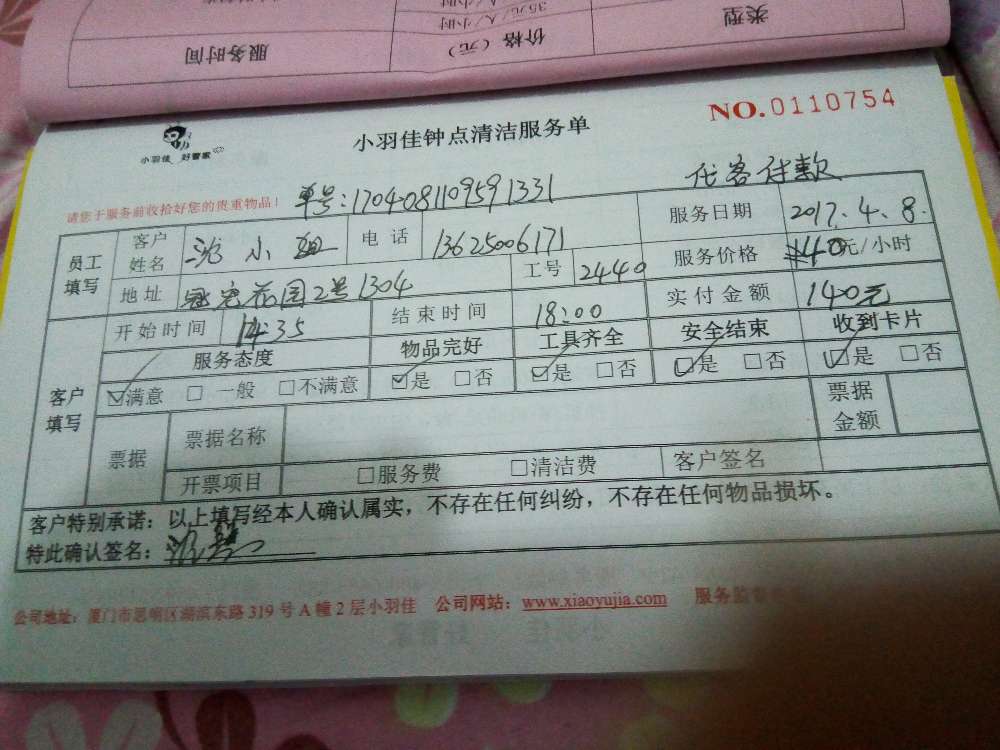 服务时间 价格（元） 类型
35元/人/小时
NO.0110754
小羽佳 好管家
小羽佳钟点清洁服务单
请您于服务前收拾好您的贵重物品！ 单号：1704081109591331 代客付款
员工填写 客户姓名 沈小姐 电话 13625006171 服务日期 2017.4.8.
地址 冠宏花园2号1304 工号 2440 服务价格 40元/小时
客户填写 开始时间 14:35 结束时间 18:00 实付金额 140元
服务态度 物品完好 工具齐全 安全结束 收到卡片
☑满意 □一般 □不满意 ☑是 □否 ☑是 □否 ☑是 □否 ☑是 □否
票据 票据名称 票据金额
开票项目 □服务费 □清洁费 客户签名
客户特别承诺：以上填写经本人确认属实，不存在任何纠纷，不存在任何物品损坏。
特此确认签名：
公司地址：厦门市思明区湖滨东路319号A幢2层小羽佳 公司网站：www.xiaoyujia.com 服务监督